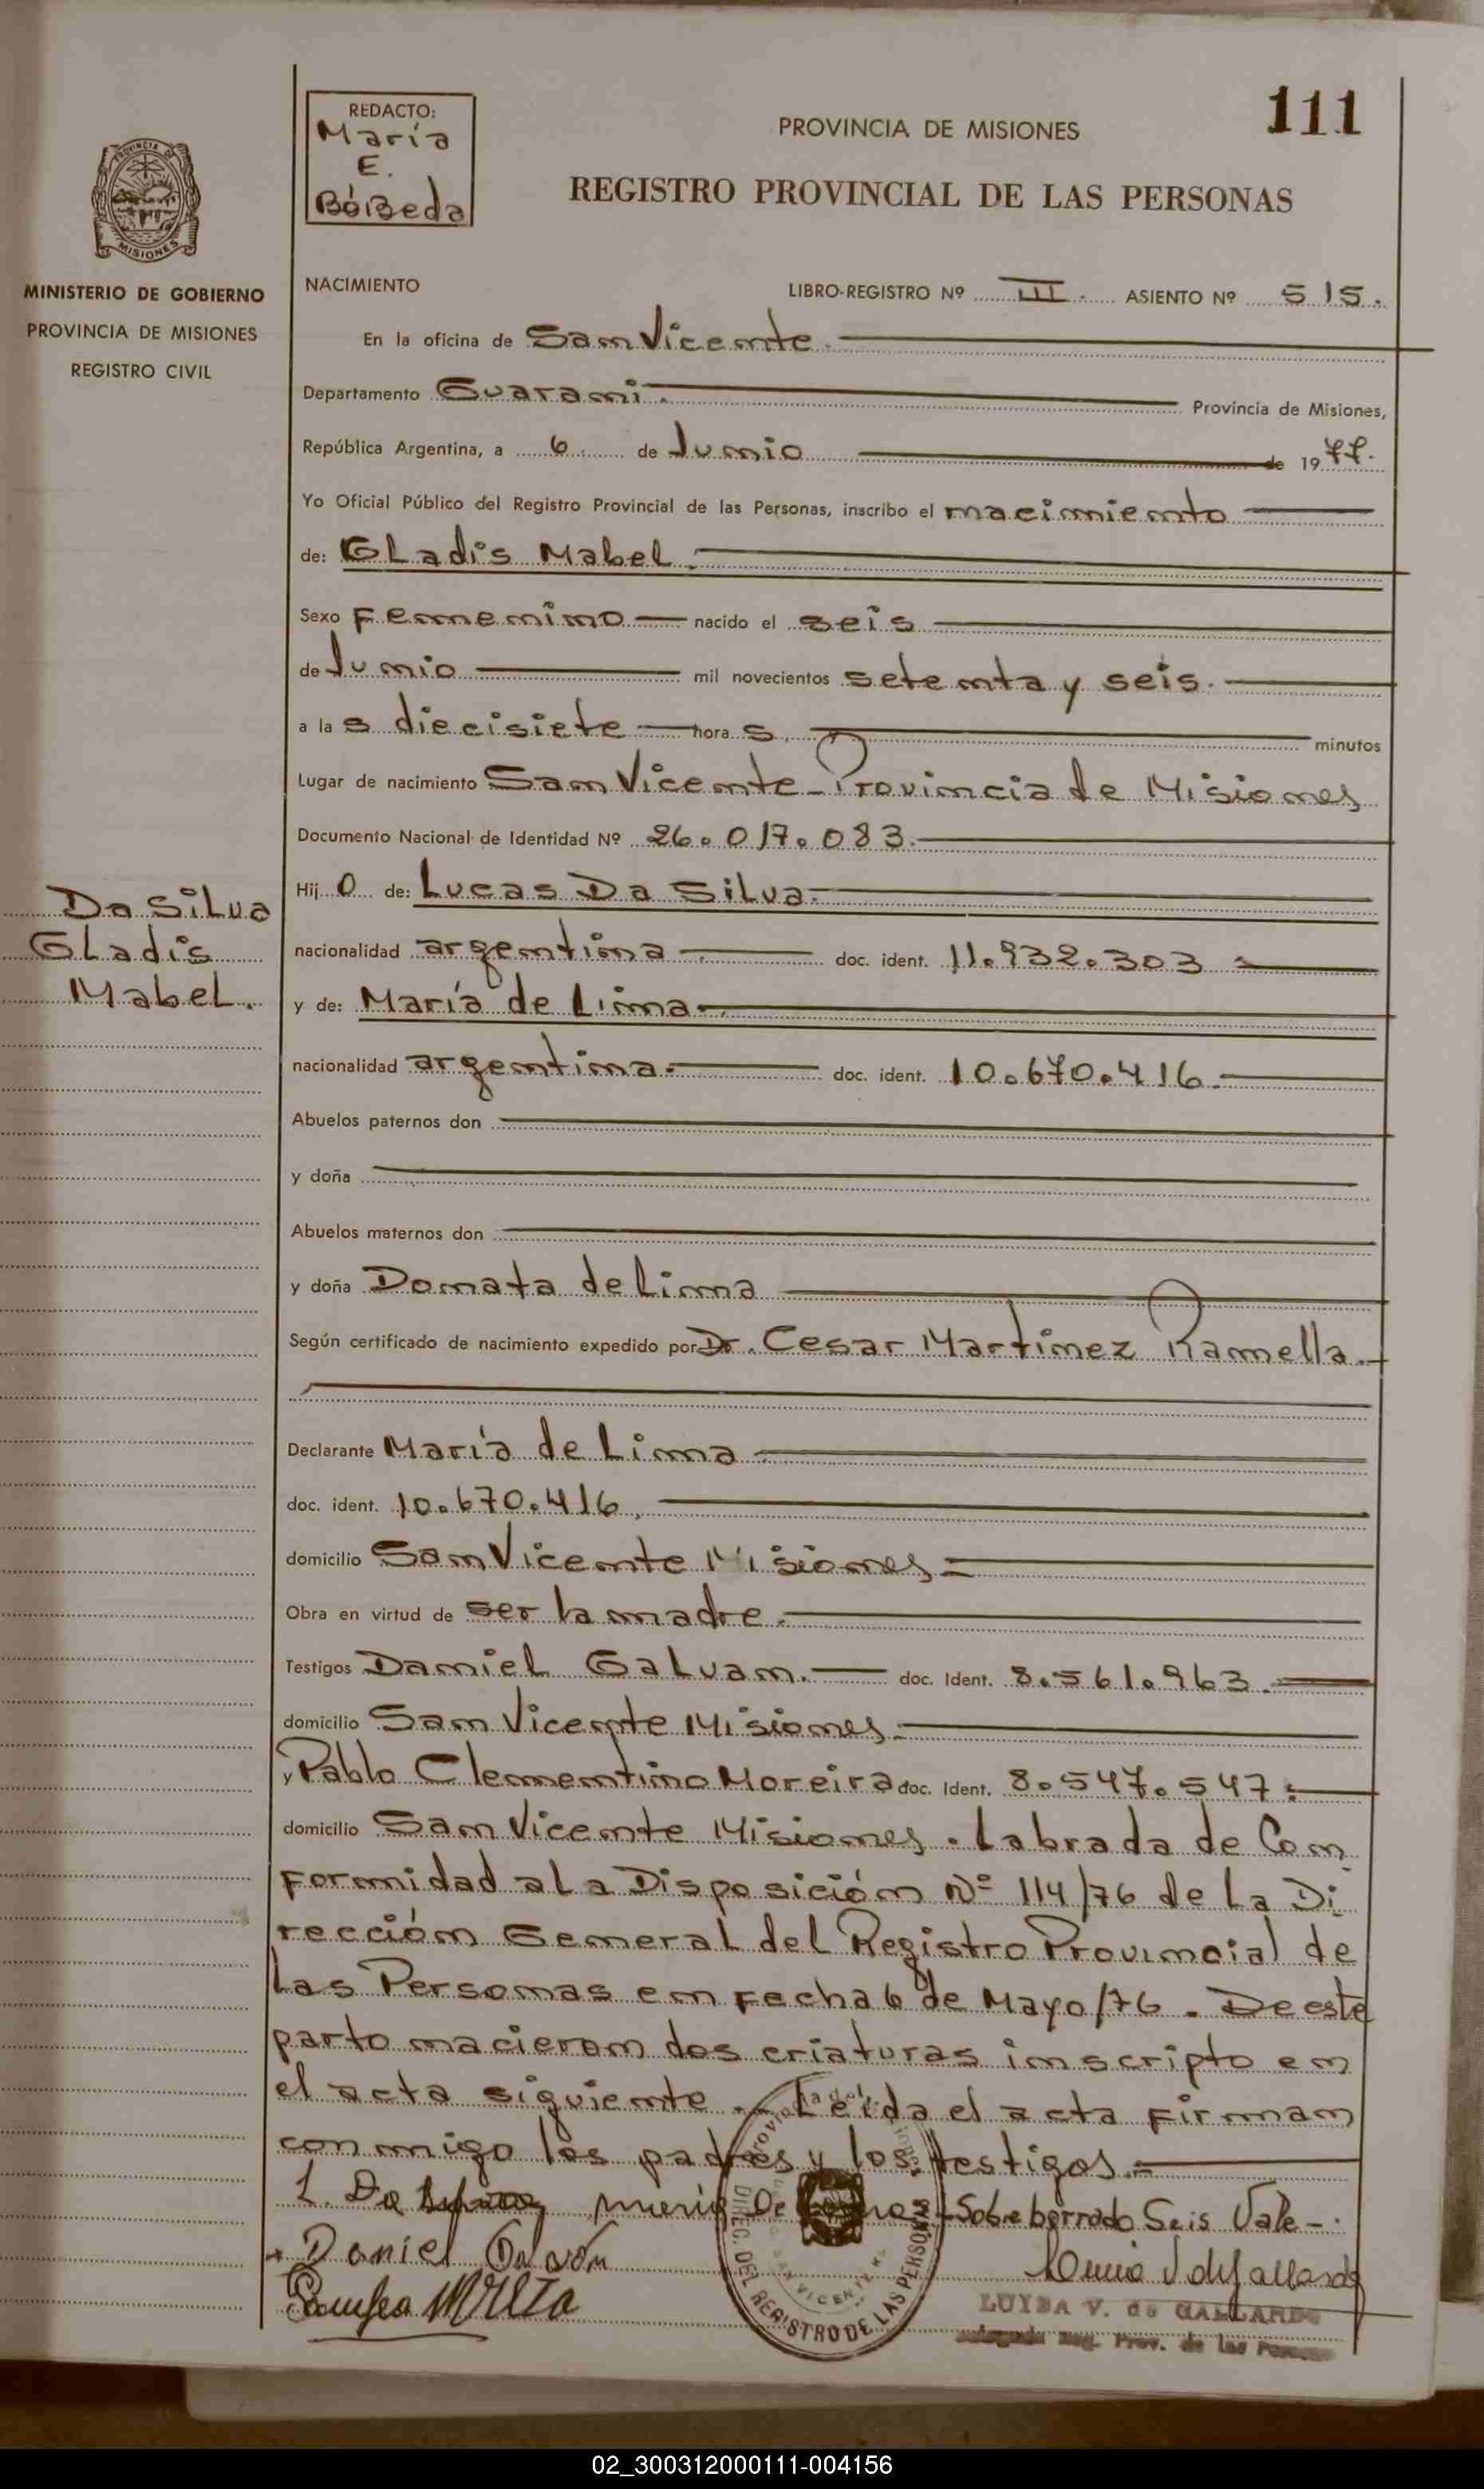 REDACTO:
María
E.
BóBeda
PROVINCIA DE MISIONES
111
REGISTRO PROVINCIAL DE LAS PERSONAS
PROVINCIA DE
MISIONES
MINISTERIO DE GOBIERNO
PROVINCIA DE MISIONES
REGISTRO CIVIL
NACIMIENTO LIBRO-REGISTRO Nº III. ASIENTO Nº 515.
En la oficina de San Vicente.
Departamento Guarani. Provincia de Misiones,
República Argentina, a 6 de Junio de 1977.
Yo Oficial Público del Registro Provincial de las Personas, inscribo el nacimiento
de: Gladis Mabel.
Sexo Femenino nacido el seis
de Junio mil novecientos setenta y seis.
a las diecisiete horas, minutos
Lugar de nacimiento San Vicente-Provincia de Misiones
Documento Nacional de Identidad Nº 26.017.083.
Hijo de: Lucas Da Silva.
Da Silva
Gladis
Mabel.
nacionalidad argentina doc. ident. 11.932.303
y de: María de Lima.
nacionalidad argentina. doc. ident. 10.670.416.
Abuelos paternos don
y doña
Abuelos maternos don
y doña Donata de Lima
Según certificado de nacimiento expedido por Dr. Cesar Martinez Ramella.
Declarante María de Lima
doc. ident. 10.670.416.
domicilio San Vicente Misiones
Obra en virtud de ser la madre.
Testigos Daniel Galvan. doc. Ident. 8.561.963.
domicilio San Vicente Misiones.
y Pablo Clementino Moreira doc. Ident. 8.547.547.
domicilio San Vicente Misiones. Labrada de Con
formidad a la Disposición Nº 114/76 de la Di
rección General del Registro Provincial de
las Personas en fecha 6 de Mayo/76. De este
parto nacieron dos criaturas inscripto en
el acta siguiente. Leída el acta firman
conmigo los padres y los testigos.
L. Da María De Sobre borrado Seis Vale-.
Daniel Galván
DIREC. DEL REGISTRO DE LAS PERSONAS
SAN VICENTE
LUISA V. de GALLARDO
Delegada Reg. Prov. de las Personas
02_300312000111-004156